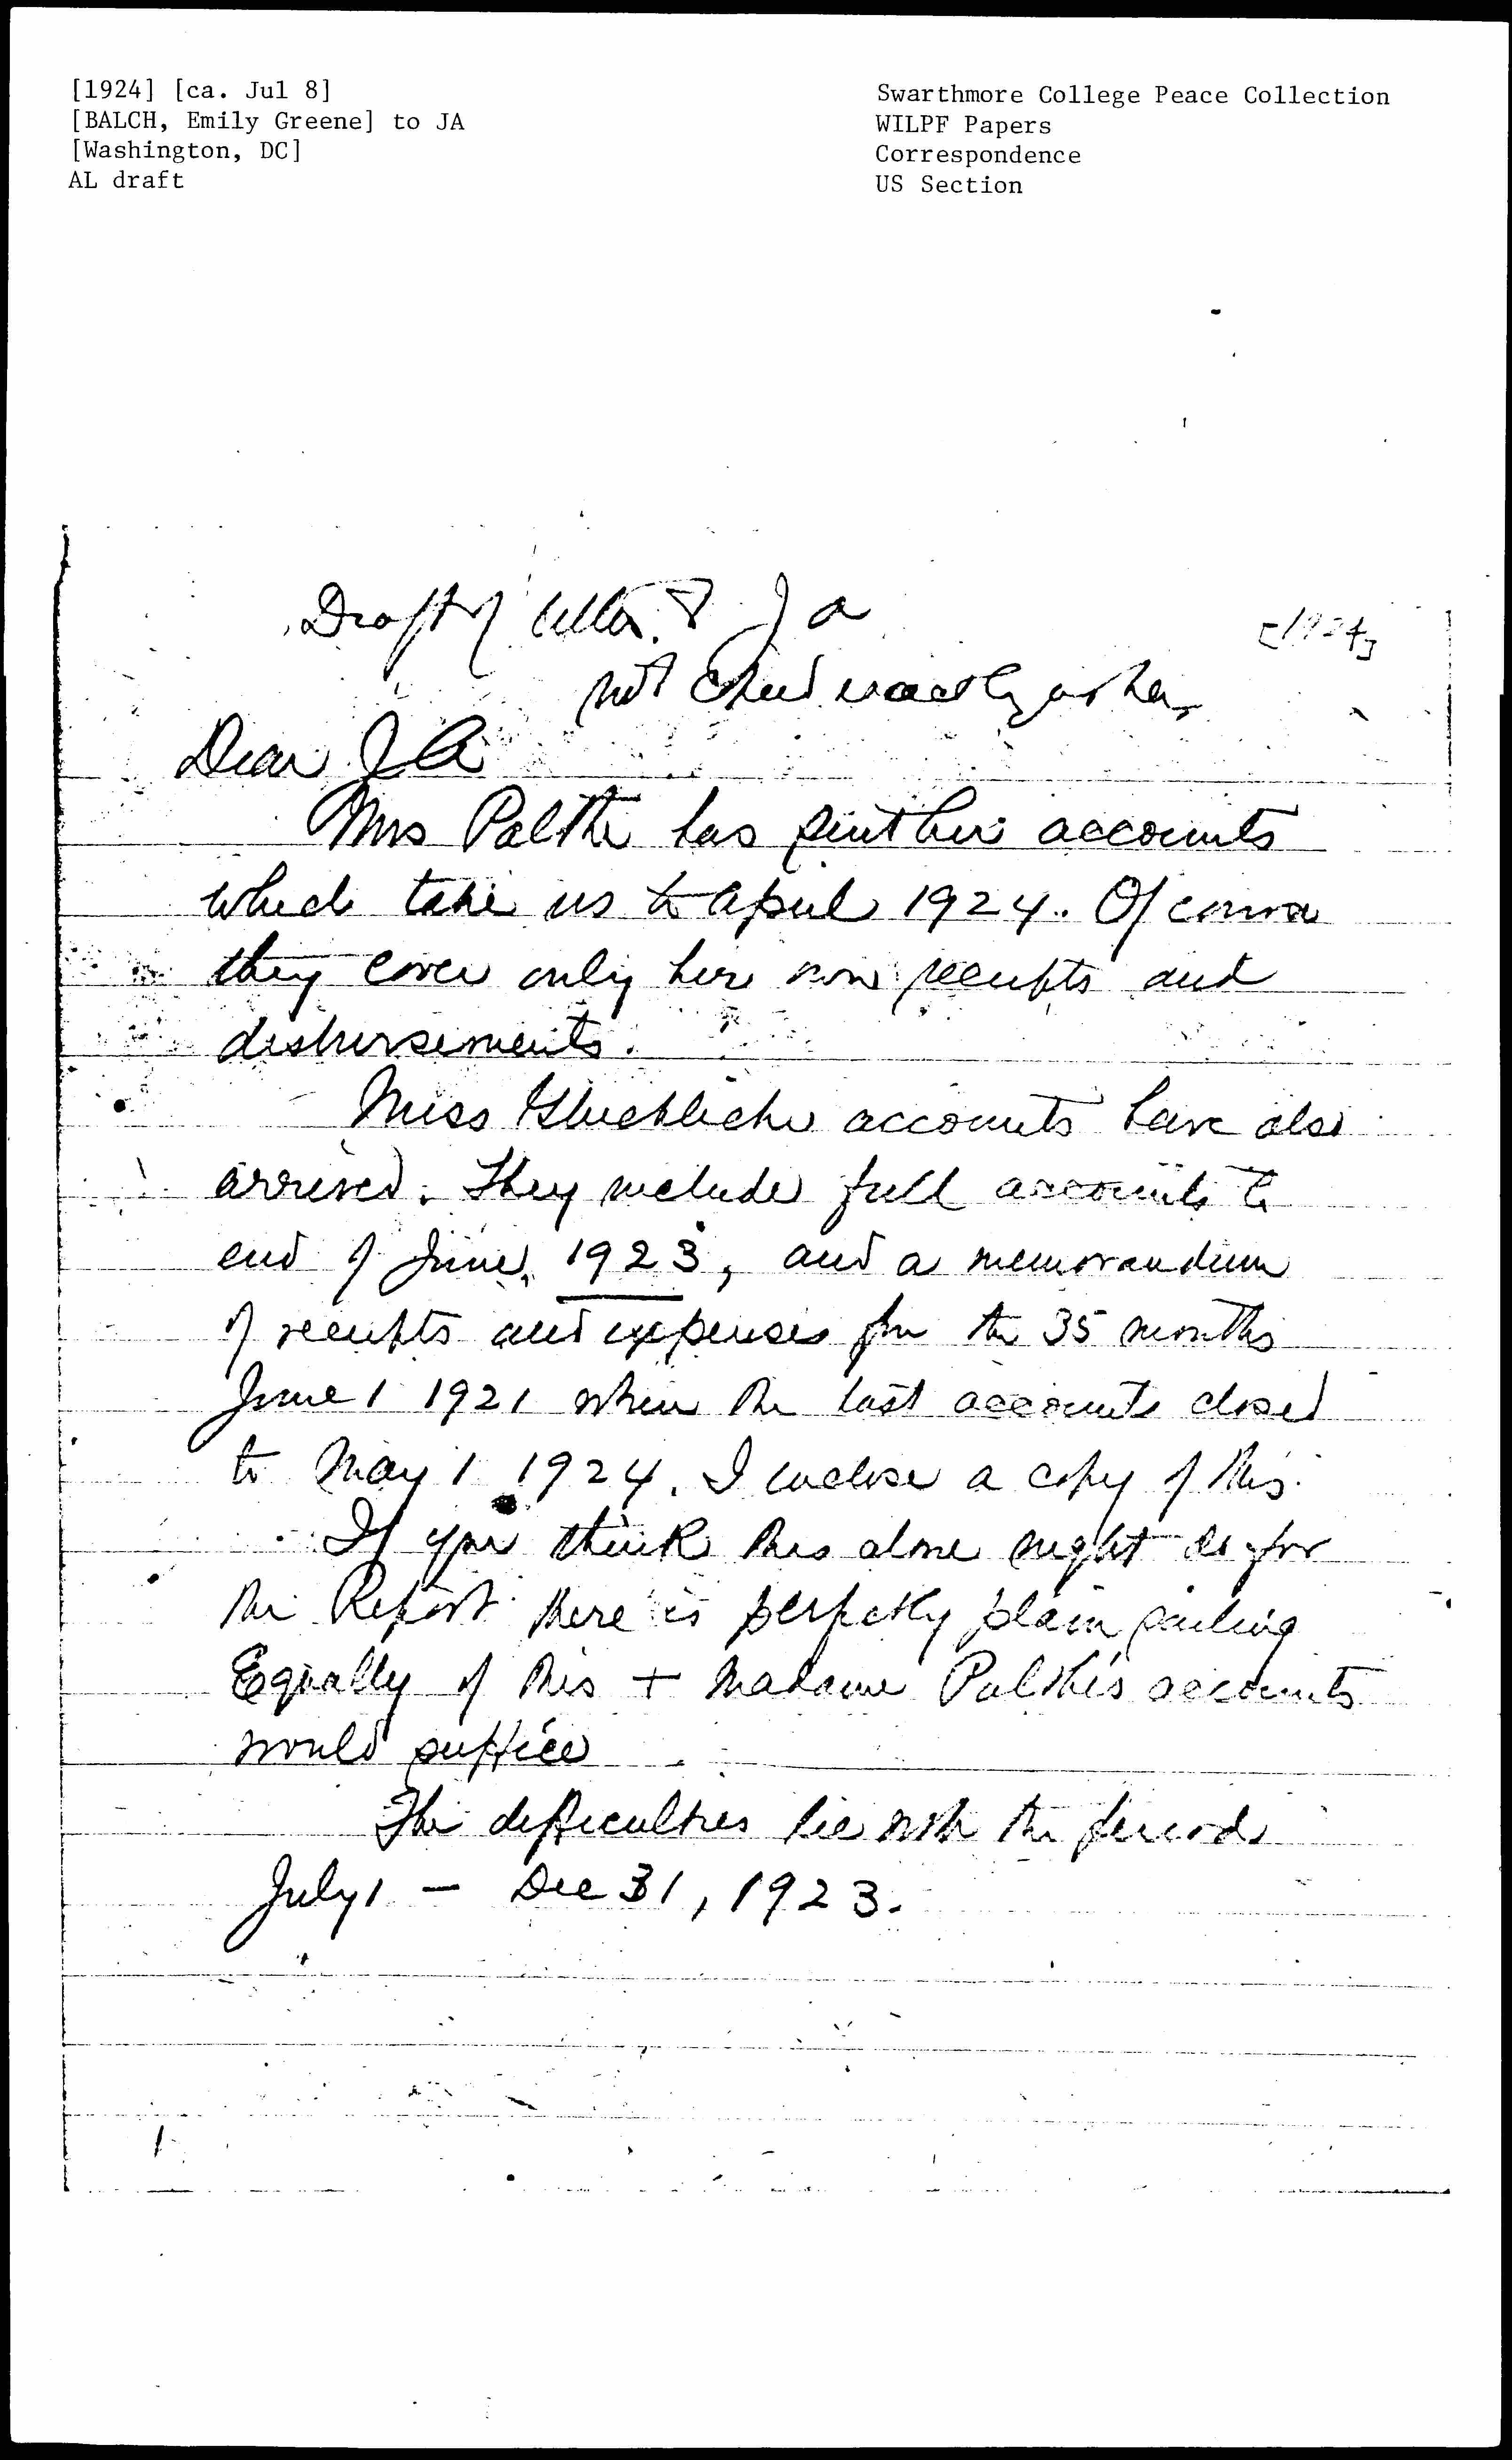 [1924] [ca. Jul 8]
[BALCH, Emily Greene] to JA
[Washington, DC]
AL draft
Swarthmore College Peace Collection
WILPF Papers
Correspondence
US Section
Draft of letter to J A
[1924]
not exactly as
Dear J A
Mrs Palthe has sent her accounts
which take us to April 1924. Of course
they cover only her own receipts and
disbursements.
Miss accounts have also
arrived. They include full accounts to
end of June, 1923, and a memorandum
of receipts and expenses for the 35 months
June 1 1921 when the last accounts closed
to May 1 1924. I enclose a copy of this.
If you think this alone might do for
the Report there is perfectly plain sailing
Equally if this + Madame Palthe's accounts
would suffice
The difficulties lie with the period
July 1 - Dec 31, 1923.